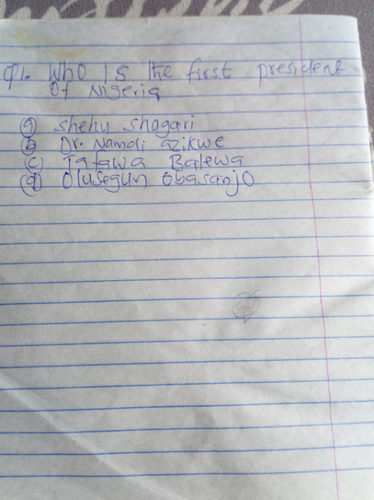 Q1. Who is the first president
Of Nigeria
(a) Shehu Shagari
(b) Dr. Namdi azikwe
(c) Tafawa Balewa
(d) Olusegun Obasanjo